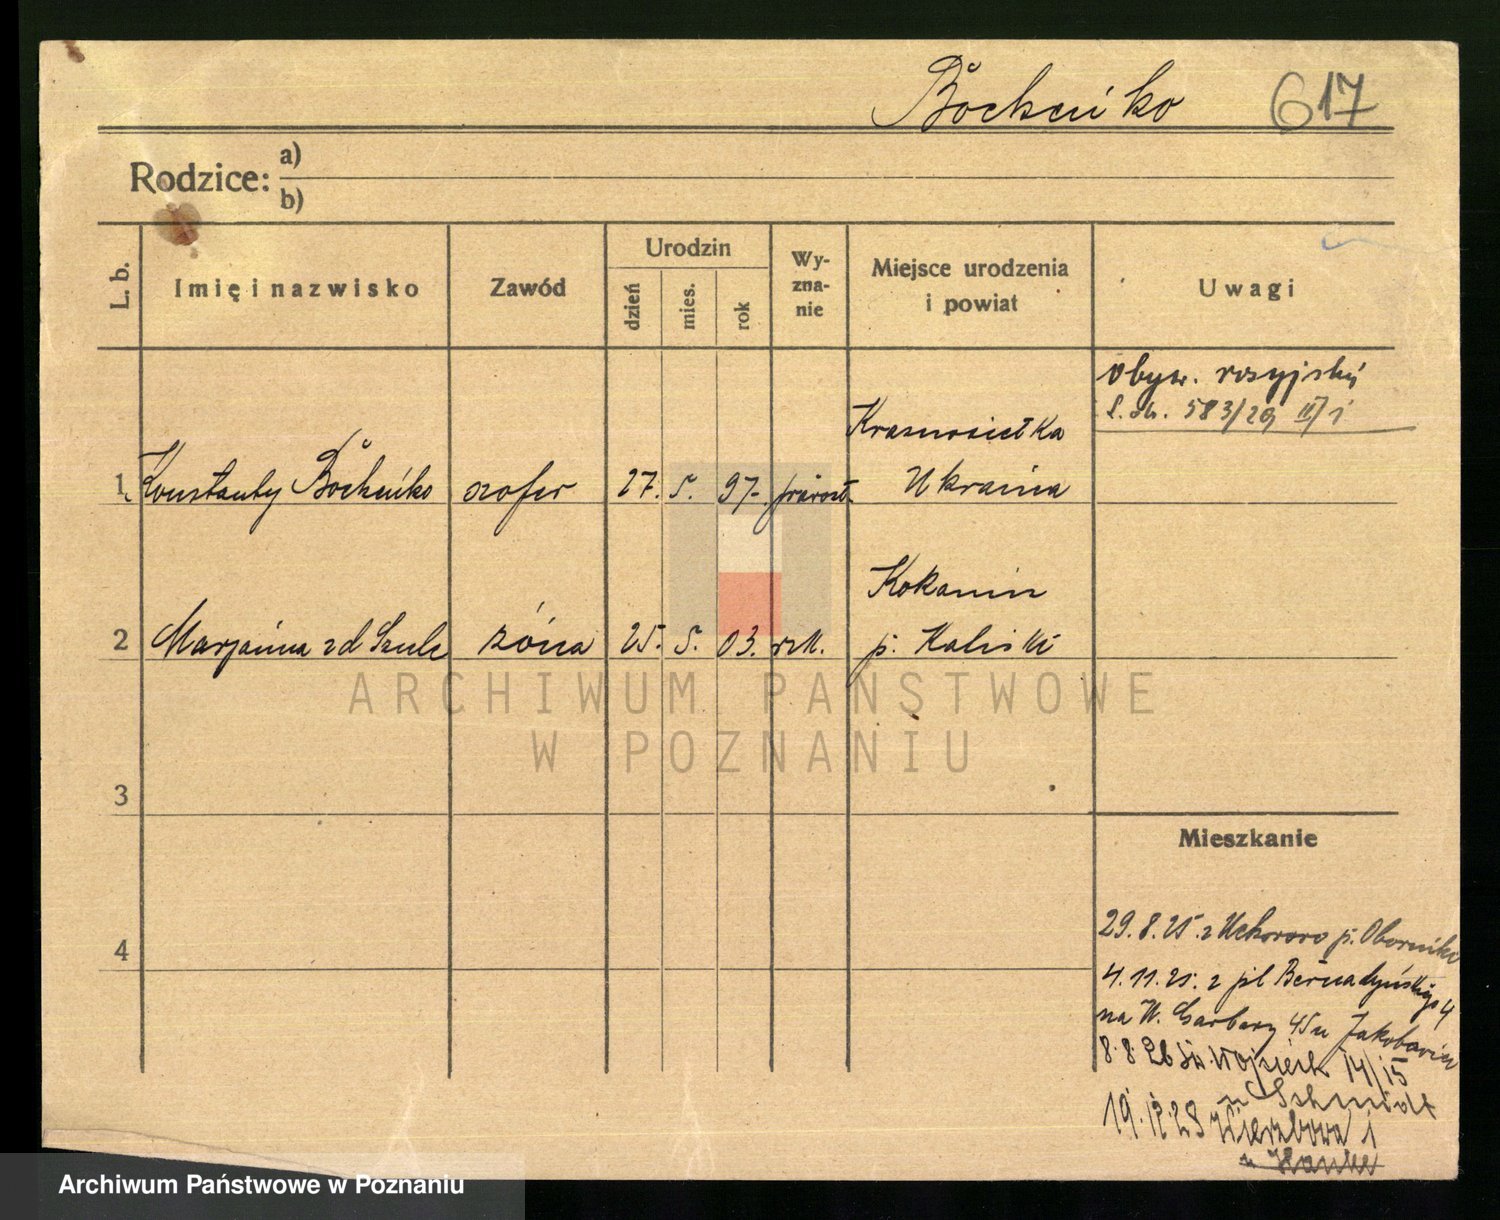 Bockeńko 617
Rodzice: a)
b)
L. b. Imię i nazwisko Zawód Urodzin dzień mies. rok Wy-zna-nie Miejsce urodzenia i powiat Uwagi
obyw. rosyjski
583/29 II/1
1 Konstanty Bockeńko szofer 27. 5. 97. prawosł. Ukraina
Kokanin
2 Marjanna zd Szulc żona 25. 5. 03. rzk. p. Kaliski
ARCHIWUM PAŃSTWOWE
W POZNANIU
3
Mieszkanie
4
29.8.25. z p. Oborniki
4.11.25. z pl Bernadyńskiego 4
na W. Garbary 45 u
8.8.26 Św. Wojciech 14/15
u Schmidt
19.12.28 Wierzbowa 1
u
Archiwum Państwowe w Poznaniu